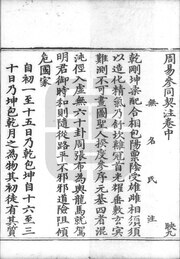 周易參同契注卷中
映九
無名氏注
乾剛坤柔配合相包陽稟陰受雄雌相須須
以造化精氣乃舒坎離冠首光耀垂敷玄冥
難測不可畫圖聖人揆度參序元基四者混
沌徑入虛無六十卦周張布為輿龍馬就駕
明君御時和則隨從路平不邪邪道險阻傾
危國家
自初一至十五日乃乾包坤自十六至三
十日乃坤包乾月之為物其初徒有其質